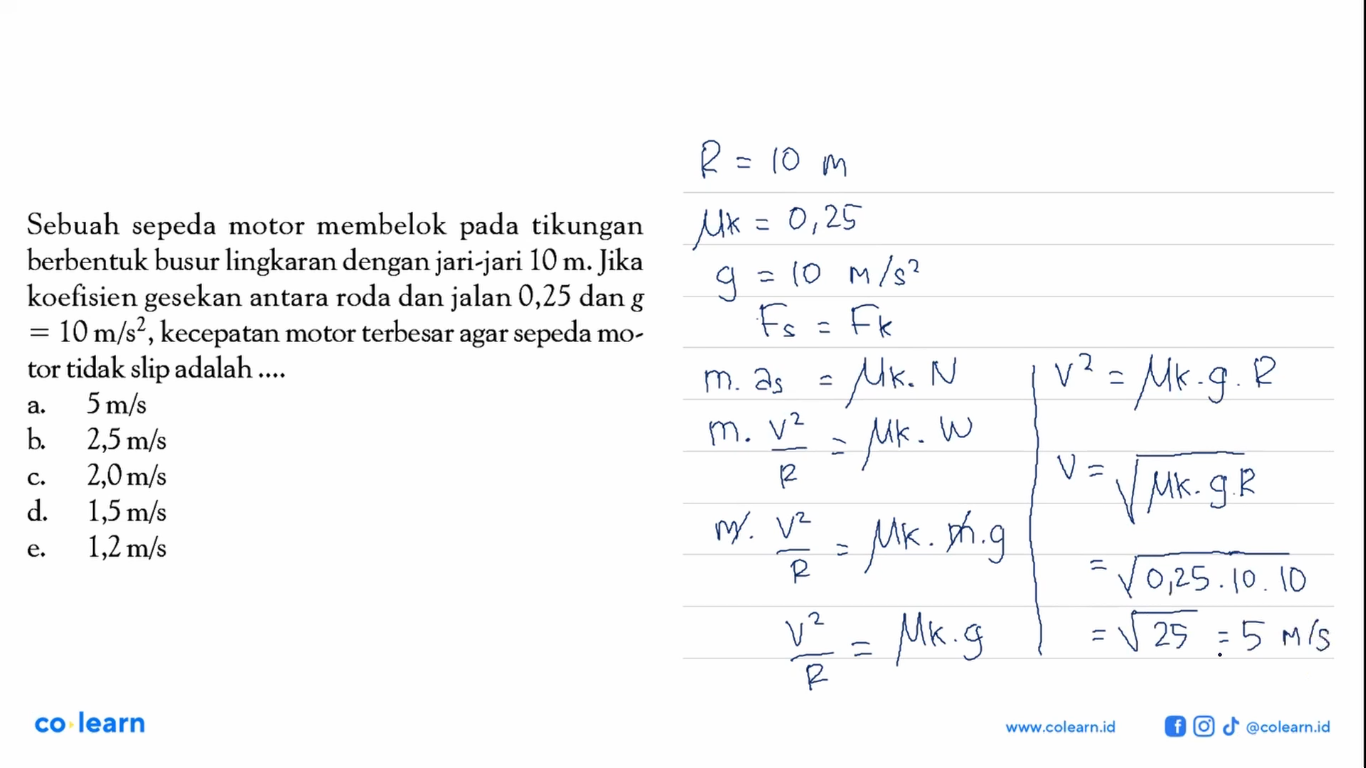 Sebuah sepeda motor membelok pada tikungan
berbentuk busur lingkaran dengan jari-jari 10 m. Jika
koefisien gesekan antara roda dan jalan 0,25 dan g
= 10 m/s², kecepatan motor terbesar agar sepeda mo-
tor tidak slip adalah ....
a. 5 m/s
b. 2,5 m/s
c. 2,0 m/s
d. 1,5 m/s
e. 1,2 m/s
R = 10 m
μk = 0,25
g = 10 m/s²
Fs = Fk
m. as = μk. N
m. v²/R = μk. W
m. v²/R = μk. m.g
v²/R = μk.g
v² = μk.g.R
v = √μk.g.R
= √0,25.10.10
= √25 = 5 m/s
co learn
www.colearn.id
@colearn.id